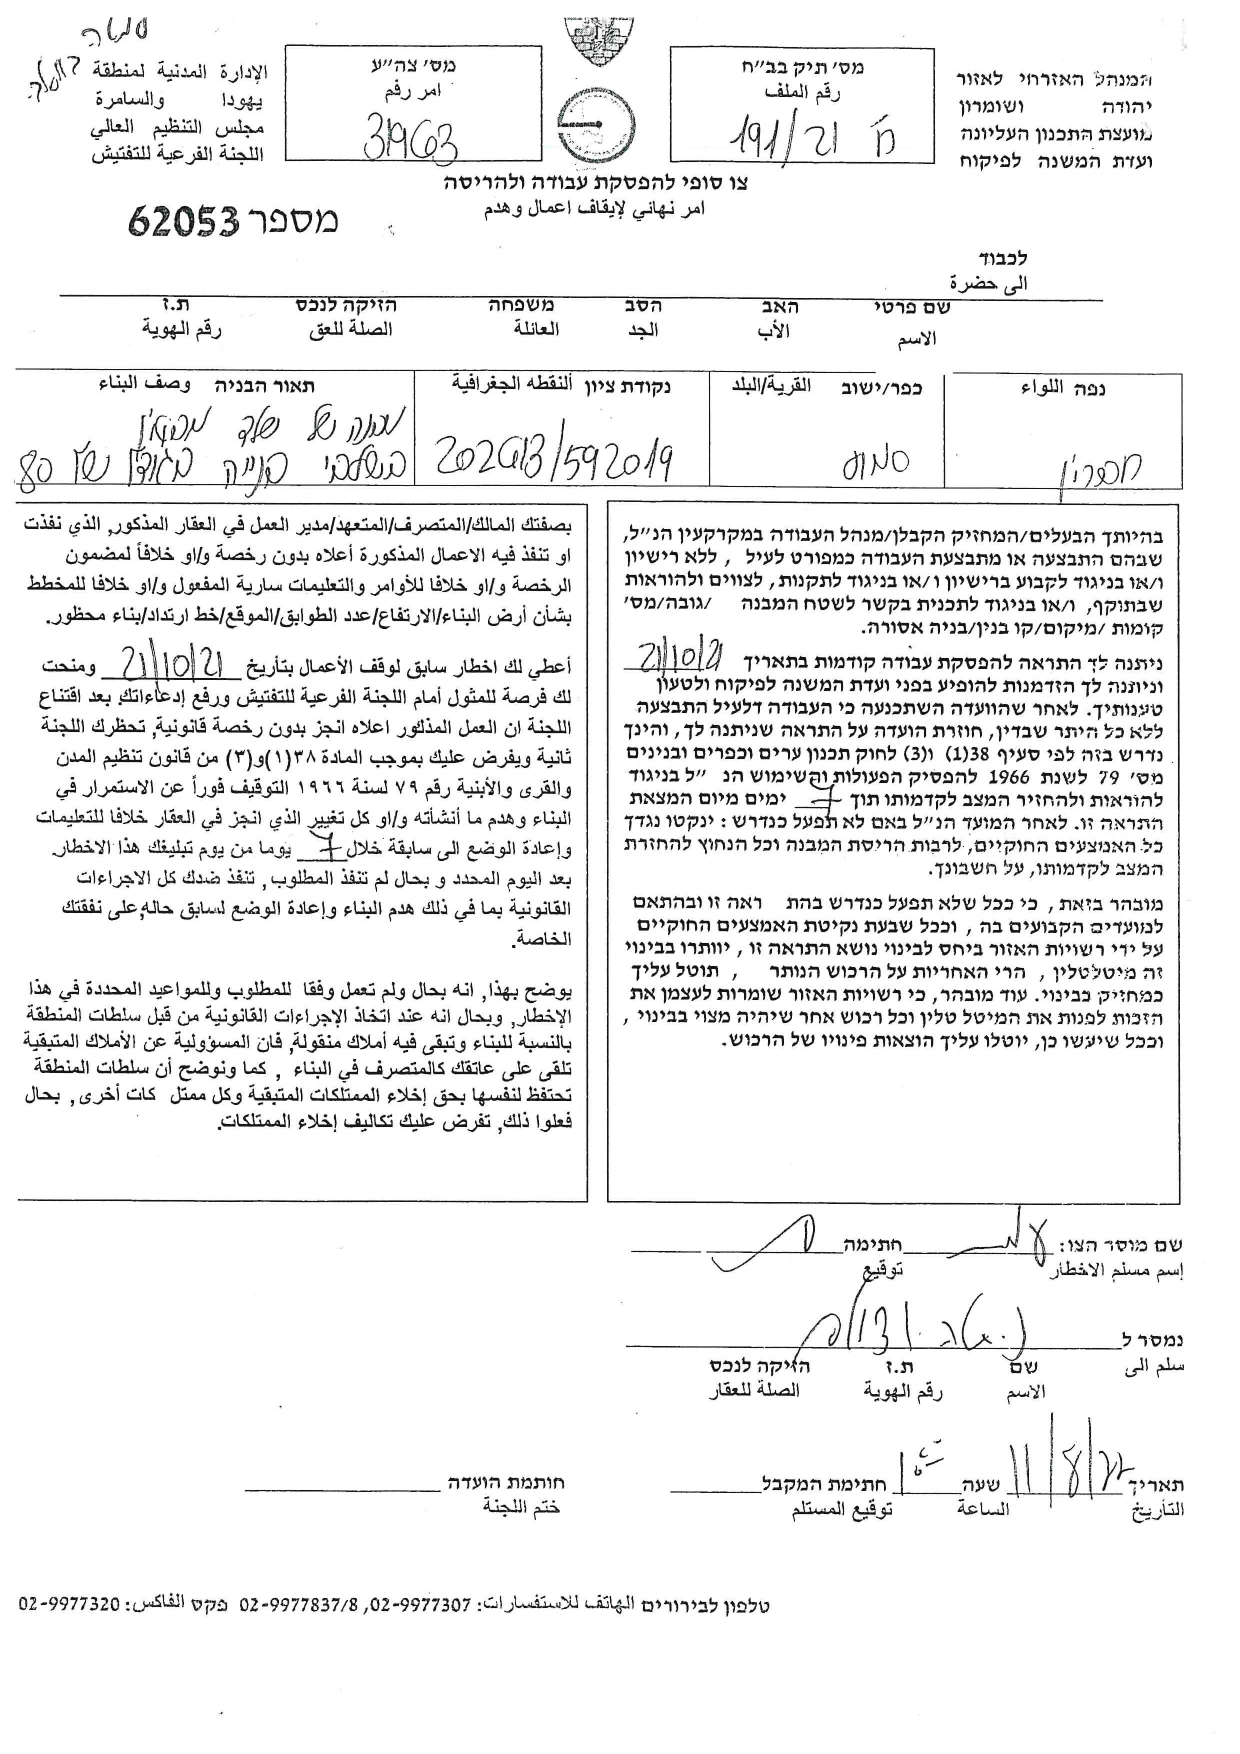 המנהל האזרחי לאזור
יהודה ושומרון
מועצת התכנון העליונה
ועדת המשנה לפיקוח
מס׳ תיק בב״ח
رقم الملف
ח 191/21
מס׳ צה״ע
امر رقم
31963
الإدارة المدنية لمنطقة
يهودا والسامرة
مجلس التنظيم العالي
اللجنة الفرعية للتفتيش
צו סופי להפסקת עבודה ולהריסה
امر نهائي لإيقاف اعمال وهدم
מספר 62053
לכבוד
الى حضرة
שם פרטי האב הסב משפחה הזיקה לנכס ת.ז
الاسم الأب الجد العائلة الصلة للعق رقم الهوية
נפה اللواء כפר/ישוב القرية/البلد נקודת ציון النقطه الجغرافية תאור הבניה وصف البناء
חברון
סמוע
202613/592019
מבנה של שלד
בשלבי בנייה בגודל של 80
בהיותך הבעלים/המחזיק הקבלן/מנהל העבודה במקרקעין הנ״ל,
שבהם התבצעה או מתבצעת העבודה כמפורט לעיל , ללא רישיון
ו/או בניגוד לקבוע ברישיון ו/או בניגוד לתקנות, לצווים ולהוראות
שבתוקף, ו/או בניגוד לתכנית בקשר לשטח המבנה /גובה/מס׳
קומות /מיקום/קו בנין/בניה אסורה.
ניתנה לך התראה להפסקת עבודה קודמות בתאריך 21/10/21
וניתנה לך הזדמנות להופיע בפני ועדת המשנה לפיקוח ולטעון
טענותיך. לאחר שהוועדה השתכנעה כי העבודה דלעיל התבצעה
ללא כל היתר שבדין, חוזרת הועדה על התראה שניתנה לך, והינך
נדרש בזה לפי סעיף 38(1) ו(3) לחוק תכנון ערים וכפרים ובנינים
מס׳ 79 לשנת 1966 להפסיק הפעולות והשימוש הנ ״ל בניגוד
להוראות ולהחזיר המצב לקדמותו תוך 7 ימים מיום המצאת
התראה זו. לאחר המועד הנ״ל באם לא תפעל כנדרש : ינקטו נגדך
כל האמצעים החוקיים, לרבות הריסת המבנה וכל הנחוץ להחזרת
המצב לקדמותו, על חשבונך.
מובהר בזאת, כי ככל שלא תפעל כנדרש בהת ראה זו ובהתאם
למועדים הקבועים בה , וככל שבעת נקיטת האמצעים החוקיים
על ידי רשויות האזור ביחס לבינוי נושא התראה זו , יוותרו בבינוי
זה מיטלטלין , הרי האחריות על הרכוש הנותר , תוטל עליך
כמחזיק בבינוי. עוד מובהר, כי רשויות האזור שומרות לעצמן את
הזכות לפנות את המיטל טלין וכל רכוש אחר שיהיה מצוי בבינוי ,
וככל שיעשו כן, יוטלו עליך הוצאות פינויו של הרכוש.
بصفتك المالك/المتصرف/المتعهد/مدير العمل في العقار المذكور, الذي نفذت
او تنفذ فيه الاعمال المذكورة أعلاه بدون رخصة و/او خلافاً لمضمون
الرخصة و/او خلافا للأوامر والتعليمات سارية المفعول و/او خلافا للمخطط
بشأن أرض البناء/الارتفاع/عدد الطوابق/الموقع/خط ارتداد/بناء محظور.
أعطي لك اخطار سابق لوقف الأعمال بتأريخ 21/10/21 ومنحت
لك فرصة للمثول أمام اللجنة الفرعية للتفتيش ورفع إدعاءاتك. بعد اقتناع
اللجنة ان العمل المذكور اعلاه انجز بدون رخصة قانونية, تحظرك اللجنة
ثانية ويفرض عليك بموجب المادة ٣٨(١)و(٣) من قانون تنظيم المدن
والقرى والأبنية رقم ٧٩ لسنة ١٩٦٦ التوقيف فوراً عن الاستمرار في
البناء وهدم ما أنشأته و/او كل تغيير الذي انجز في العقار خلافا للتعليمات
وإعادة الوضع الى سابقة خلال 7 يوما من يوم تبليغك هذا الاخطار.
بعد اليوم المحدد و بحال لم تنفذ المطلوب, تنفذ ضدك كل الاجراءات
القانونية بما في ذلك هدم البناء وإعادة الوضع لسابق حاله, على نفقتك
الخاصة.
يوضح بهذا, انه بحال ولم تعمل وفقا للمطلوب وللمواعيد المحددة في هذا
الإخطار, وبحال انه عند اتخاذ الإجراءات القانونية من قبل سلطات المنطقة
بالنسبة للبناء وتبقى فيه أملاك منقولة, فان المسؤولية عن الأملاك المتبقية
تلقى على عاتقك كالمتصرف في البناء , كما ونوضح أن سلطات المنطقة
تحتفظ لنفسها بحق إخلاء الممتلكات المتبقية وكل ممتل كات أخرى, بحال
فعلوا ذلك, تفرض عليك تكاليف إخلاء الممتلكات.
שם מוסר הצו: חתימה
إسم مسلم الاخطار توقيع
נמסר ל
سلم الى
שם ת.ז הזיקה לנכס
الاسم رقم الهوية الصلة للعقار
תאריך 11/8/22 שעה חתימת המקבל חותמת הועדה
التأريخ الساعة توقيع المستلم ختم اللجنة
טלפון לבירורים الهاتف للاستفسارات: 02-9977307, 02-9977837/8 פקס الفاكس: 02-9977320